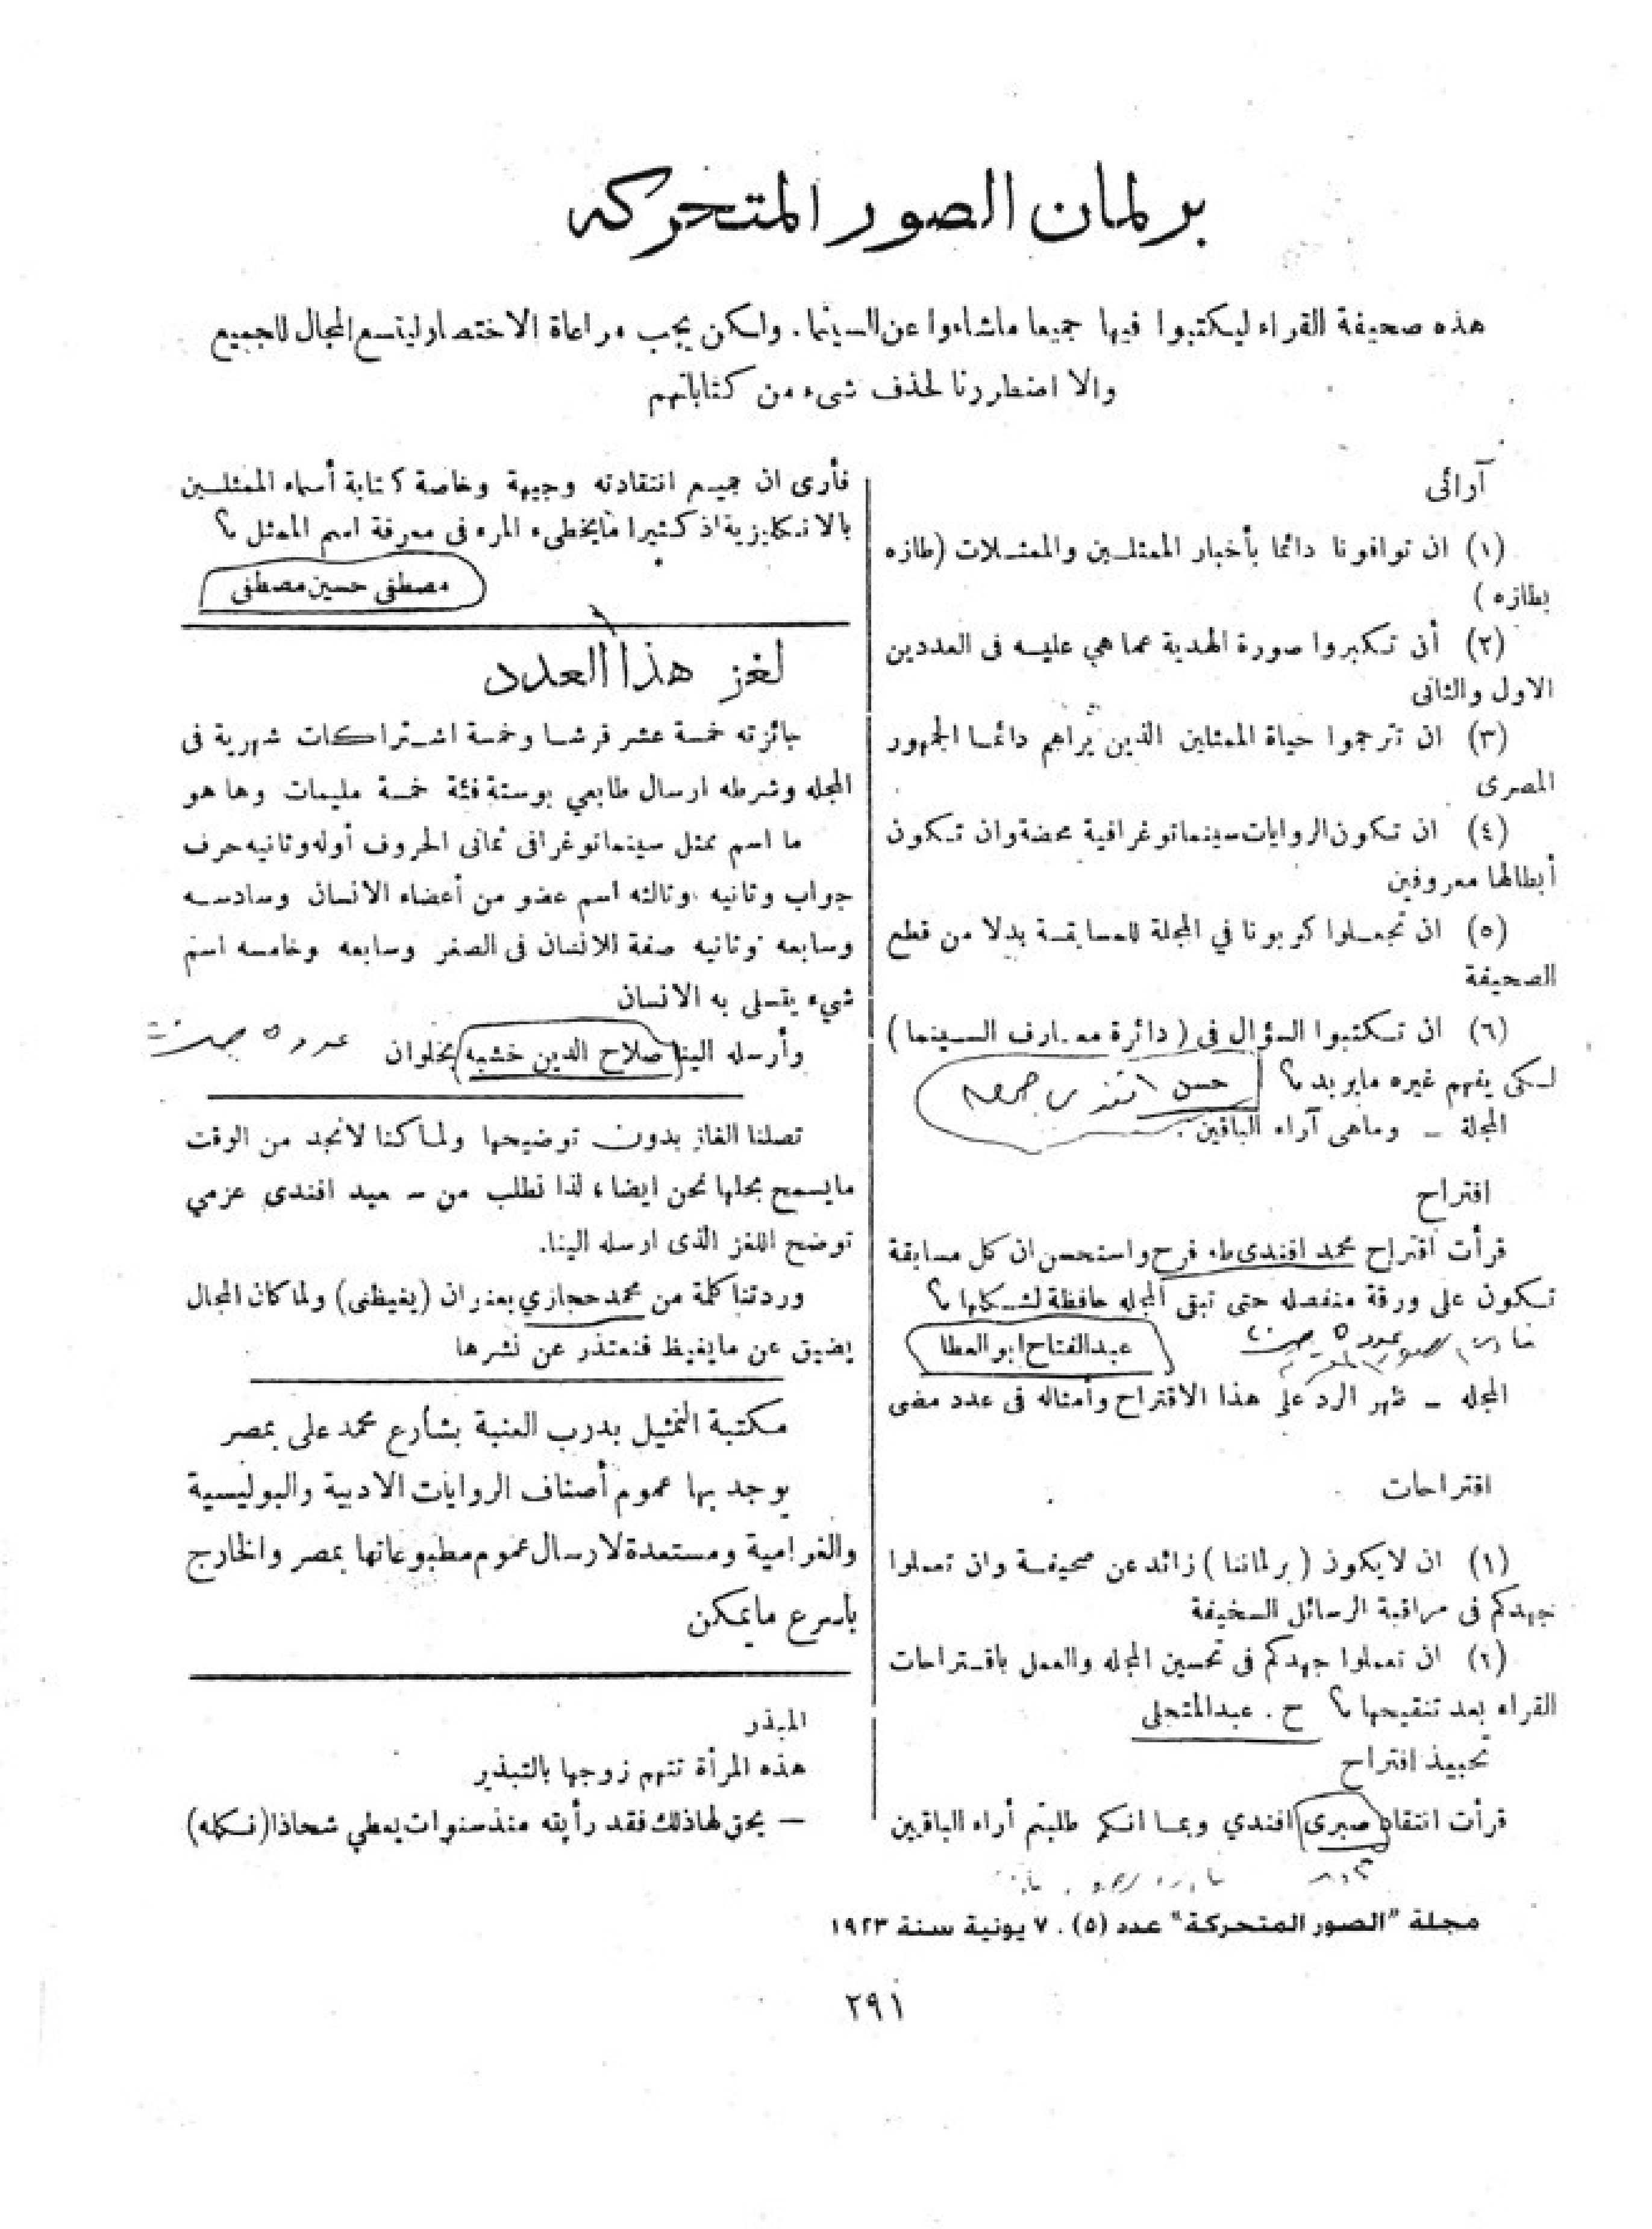 برلمان الصور المتحركه
هذه صحيفة القراء ليكتبوا فيها جميعا ماشاءوا عن السينما . ولكن يجب مراعاة الاختصار ليتسع المجال للجميع
والا اضطررنا لحذف شىء من كتاباتهم
آرائى
(١) ان توافونا دائما بأخبار الممثلين والممثلات (طازه
بطازه)
(٢) أن تكبروا صورة الهدية عما هي عليه فى العددين
الاول والثانى
(٣) ان تترجموا حياة الممثلين الذين يراهم دائما الجمهور
المصرى
(٤) ان تكون الروايات سينماتوغرافية محضة وان تكون
أبطالها معروفين
(٥) ان تجعلوا كوبونا في المجلة للمسابقة بدلا من قطع
الصحيفة
(٦) ان تكتبوا السؤال فى (دائرة معارف السينما)
لكى يفهم غيره مايريد ؟ حسن افندى جمعه
المجلة – وماهى آراء الباقين .
افتراح
قرأت اقتراح محمد افندى طه فرح واستحسن ان كل مسابقة
تكون على ورقة منفصله حتى تبقى المجله حافظة لشكلها ؟
عبدالفتاح ابو العطا
المجله – ظهر الرد على هذا الاقتراح وأمثاله فى عدد مضى
اقتراحات
(١) ان لايكون (برلماننا) زائد عن صحيفة وان تعملوا
جهدكم فى مراقبة الرسائل السخيفة
(٢) ان تعملوا جهدكم فى تحسين المجله والعمل باقتراحات
القراء بعد تنقيحها ؟ ح . عبدالمتجلى
تحبيذ افتراح
قرأت انتقاد صبرى افندي وبما انكم طلبتم أراء الباقين
فأرى ان جميع انتقادته وجيهة وخاصة كتابة أسماء الممثلين
بالانكليزية اذ كثيرا مايخطىء المرء فى معرفة اسم الممثل ؟
مصطفى حسين مصطفى
لغز هذا العدد
جائزته خمسة عشر قرشا وخمسة اشتراكات شهرية فى
المجله وشرطه ارسال طابعي بوستة فئة خمسة مليمات وها هو
ما اسم ممثل سينماتوغرافى ثمانى الحروف أوله وثانيه حرف
جواب وثانيه وثالثه اسم عضو من أعضاء الانسان وسادسه
وسابعه وثانيه صفة للانسان فى الصغر وسابعه وخامسه اسم
شيء يتسلى به الانسان
وأرسله الينا (صلاح الدين خشبه) بحلوان
تصلنا الغاز بدون توضيحها ولما كنا لانجد من الوقت
مايسمح بحلها نحن ايضا ، لذا نطلب من – سيد افندى عزمي
توضح اللغز الذى ارسله الينا.
وردتنا كلمة من محمد حجازي بعنران (يغيظنى) ولما كان المجال
يضيق عن مايغيظ فنعتذر عن نشرها
مكتبة التمثيل بدرب العنبة بشارع محمد على بمصر
يوجد بها عموم أصناف الروايات الادبية والبوليسية
والغرامية ومستعدة لارسال عموم مطبوعاتها بمصر والخارج
بأسرع مايمكن
المبذر
هذه المرأة تتهم زوجها بالتبذير
– يحق لها ذلك فقد رأيته منذ سنوات يعطي شحاذا (نكله)
مجلة "الصور المتحركة" عدد (٥) . ٧ يونية سنة ١٩٢٣
٢٩١